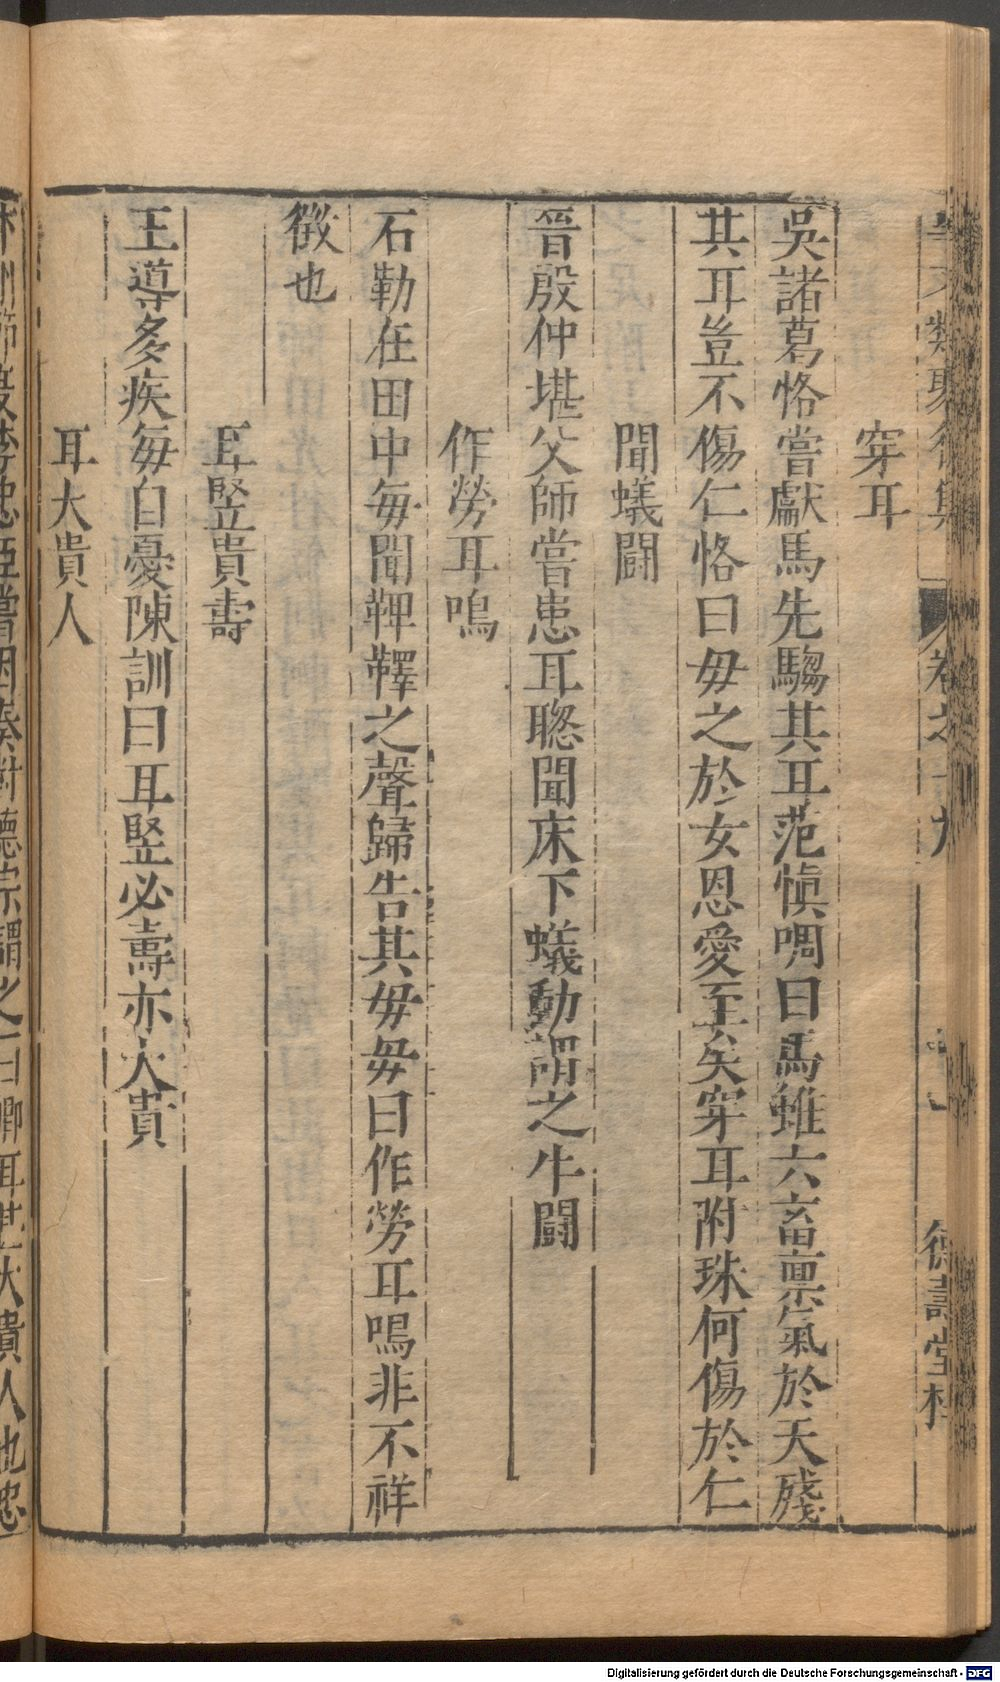 穿耳
吳諸葛恪嘗獻馬先騶其耳范愼啁曰馬雖六畜禀氣於天殘
其耳豈不傷仁恪曰毋之於女恩愛至矣穿耳附珠何傷於仁
聞蟻闘
晉殷仲堪父師嘗患耳聦聞床下蟻動謂之牛闘
作勞耳鳴
石勒在田中毎聞鞞鞸之聲歸告其毋毋曰作勞耳鳴非不祥
徴也
耳竪貴壽
王導多疾毎自憂陳訓曰耳竪必壽亦大貴
耳大貴人
Digitalisierung gefördert durch die Deutsche Forschungsgemeinschaft - DFG